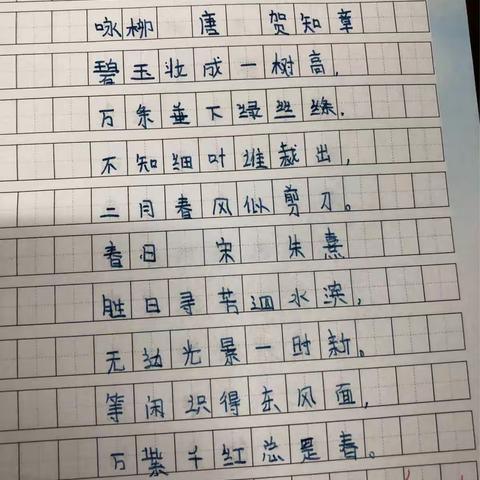 咏柳 唐 贺知章
碧玉妆成一树高,
万条垂下绿丝绦.
不知细叶谁裁出,
二月春风似剪刀。
春日 宋 朱熹
胜日寻芳泗水滨,
无边光景一时新。
等闲识得东风面,
万紫千红总是春。